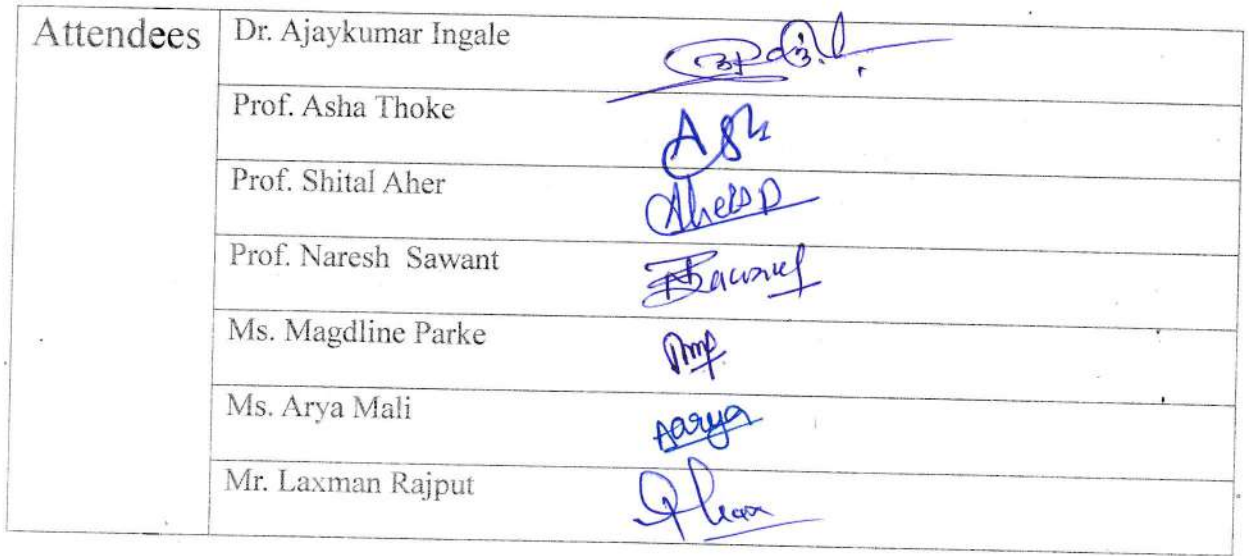 Attendees
Dr. Ajaykumar Ingale
Prof. Asha Thoke
Ash
Prof. Shital Aher
AherSD
Prof. Naresh Sawant
NSawant
Ms. Magdline Parke
Ms. Arya Mali
Aarya
Mr. Laxman Rajput